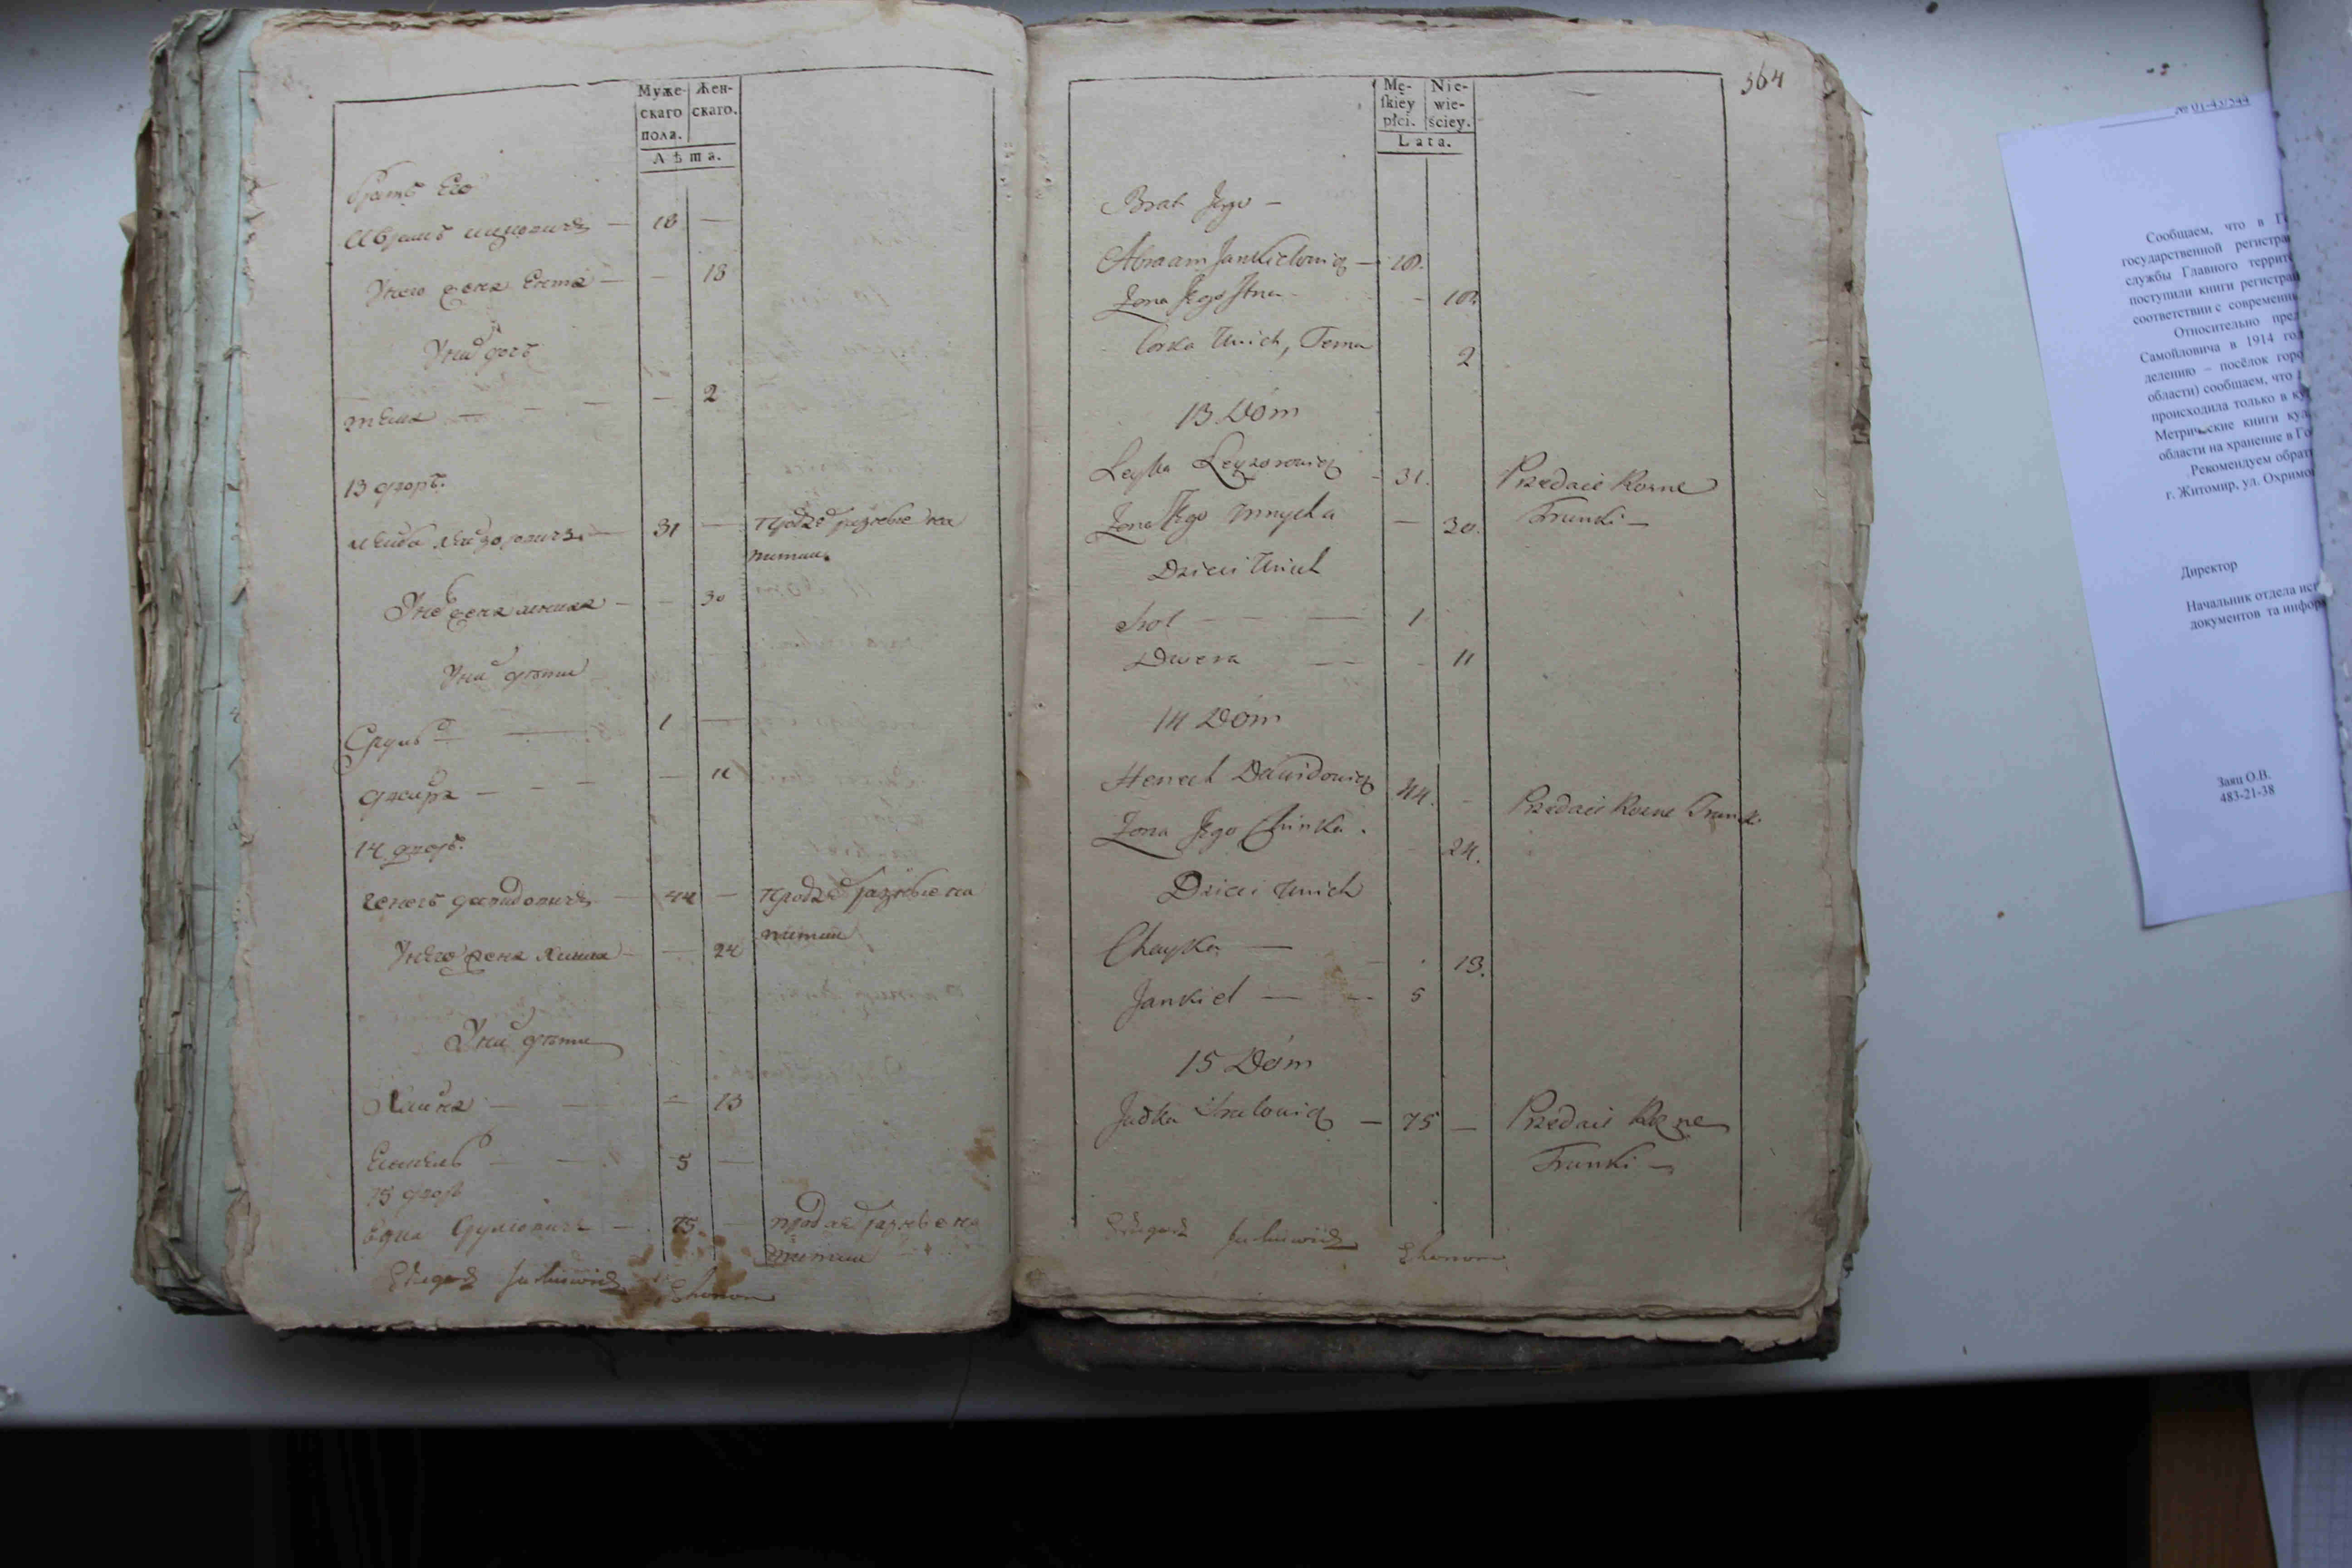 Муже-
скаго
пола.
Жен-
скаго.
Лѣта.
братъ его
18 —
У него жена Ента — — 18
У них дочь
тема — — — — 2
13 дворъ.
лейба лейзоровичъ — 31 — продаетъ разные на
питки
— 30
У них дѣти
Сруль — 1 —
двейра — — — — 11
14 дворъ.
генехъ давидовичъ — 44 — продаетъ разные на
питки
У него жена — — 24
У них дѣти
Хайка — — — 13
5 —
15 дворъ
Срулевичъ — 75 — продаетъ разные на
питки
564
Mę-
ſkiey
płci.
Nie-
wie-
ściey.
Lata.
Brat Jego —
Abraam Jankielowicz — 18.
Zona Jego — 18
Corka Unich, Tema 2
13 Dom
Leyba Leyzorowicz — 31. Przedaie Rozne
Trunki —
Zona Jego — 30.
Dzieci Unich
Srol — — 1
Dwera — — — 11
14 Dom
Henech Dawidowicz 44. — Przedaie Rozne Trunki
Zona Jego Chinka. 24.
Dzieci Unich
Chayka — 13.
Jankiel — — 5
15 Dom
Judka Srulowicz — 75 — Przedaie Rozne
Trunki —
№ 01-43/544
Сообщаем, что в Г
государственной регистра
службы Главного террит
поступили книги регистра
соответствии с современн
Относительно пред
Самойловича в 1914 год
делению – посёлок горо
области) сообщаем, что
происходила только в
Метрические книги кул
области на хранение в Го
Рекомендуем обрат
г. Житомир, ул. Охримо
Директор
Начальник отдела исп
документов та инфор
Заяц О.В.
483-21-38